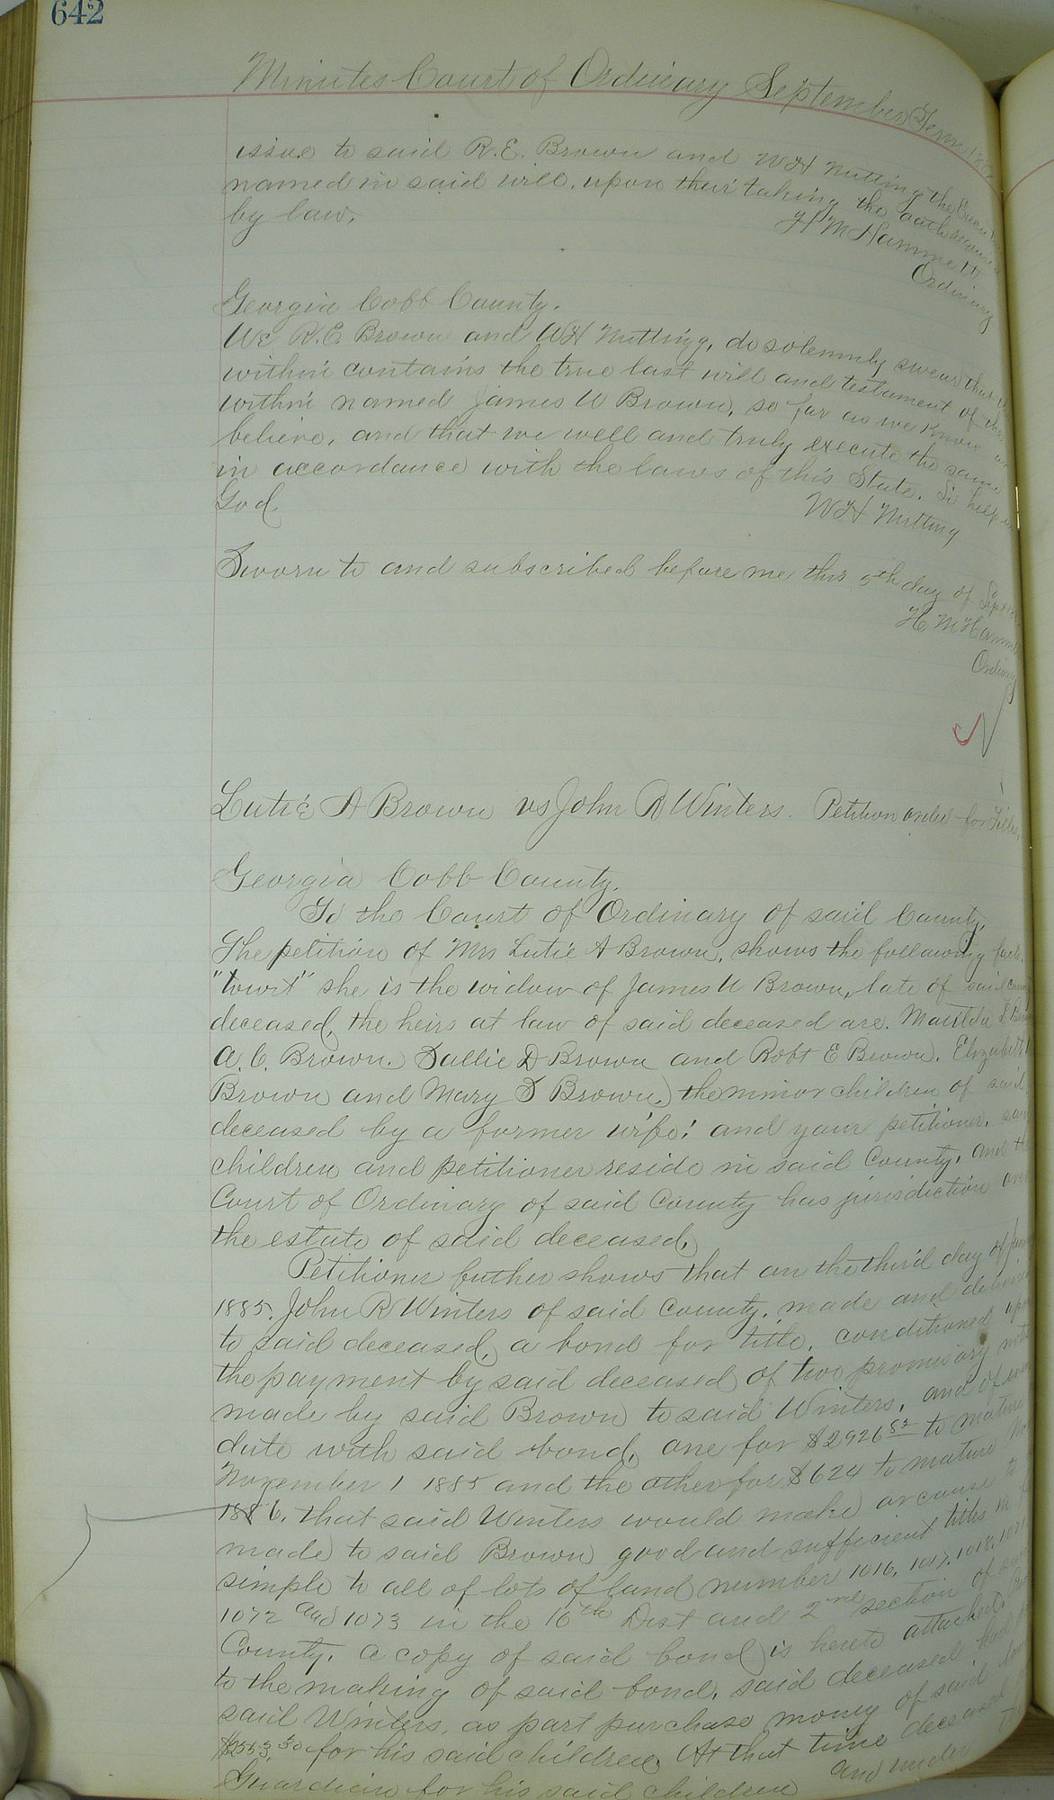 642
Minutes Court of Ordinary September Term
issue to said R.E. Brown and W H Nutting the
named in said will, upon their taking the oath
by law.
H M Hammett
Ordinary
Georgia Cobb County.
We R.E Brown and W H Nutting, do solemnly swear that
within contains the true last will and testament of the
within named James W Brown, so far as we know
believe, and that we well and truly execute the same
in accordance with the laws of this State. So help
God
W H Nutting
Sworn to and subscribed before me this 5th day of
H M Hamm
Ordinary
Lutie A Brown vs John R Winters. Petition order for Titles
Georgia Cobb County.
To the Court of Ordinary of said County.
The petition of Mrs Lutie A Brown, shows the following
"towit" she is the widow of James W Brown, late of said
deceased, the heirs at law of said deceased are. Matilda
A. C. Brown. Sallie D Brown and Robt E Brown.
Brown and Mary S Brown, the minor children of said
deceased by a former wife: and your petitioner.
children and petitioner reside in said County, and
Court of Ordinary of said County has jurisdiction
the estate of said deceased,
Petitioner futher shows that on the third day of
1885, John R Winters of said County, made and
to said deceased, a bond for title, conditioned upon
the payment by said deceased of two promisary
made by said Brown to said Winters, and of
date with said bond, one for $2926 82 to mature
November 1 1885 and the other for $624 to mature
1886, that said Winters would make or cause to
made to said Brown good and sufficient titles in
simple to all of lots of land number 1016, 1017, 1018,
1072 and 1073 in the 16th Dist and 2nd section of
County, a copy of said bond is hereto attached,
to the making of said bond, said deceased had
said Winters, as part purchase money of said
for his said children. At that time deceased
Guardian for his said children and under